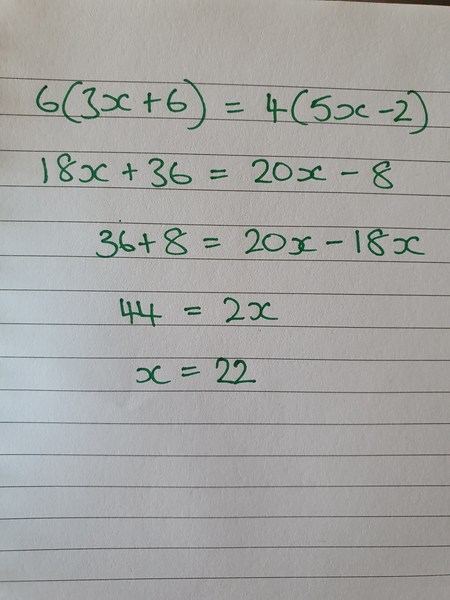 6(3x+6) = 4(5x-2)
18x + 36 = 20x - 8
36+8 = 20x - 18x
44 = 2x
x = 22